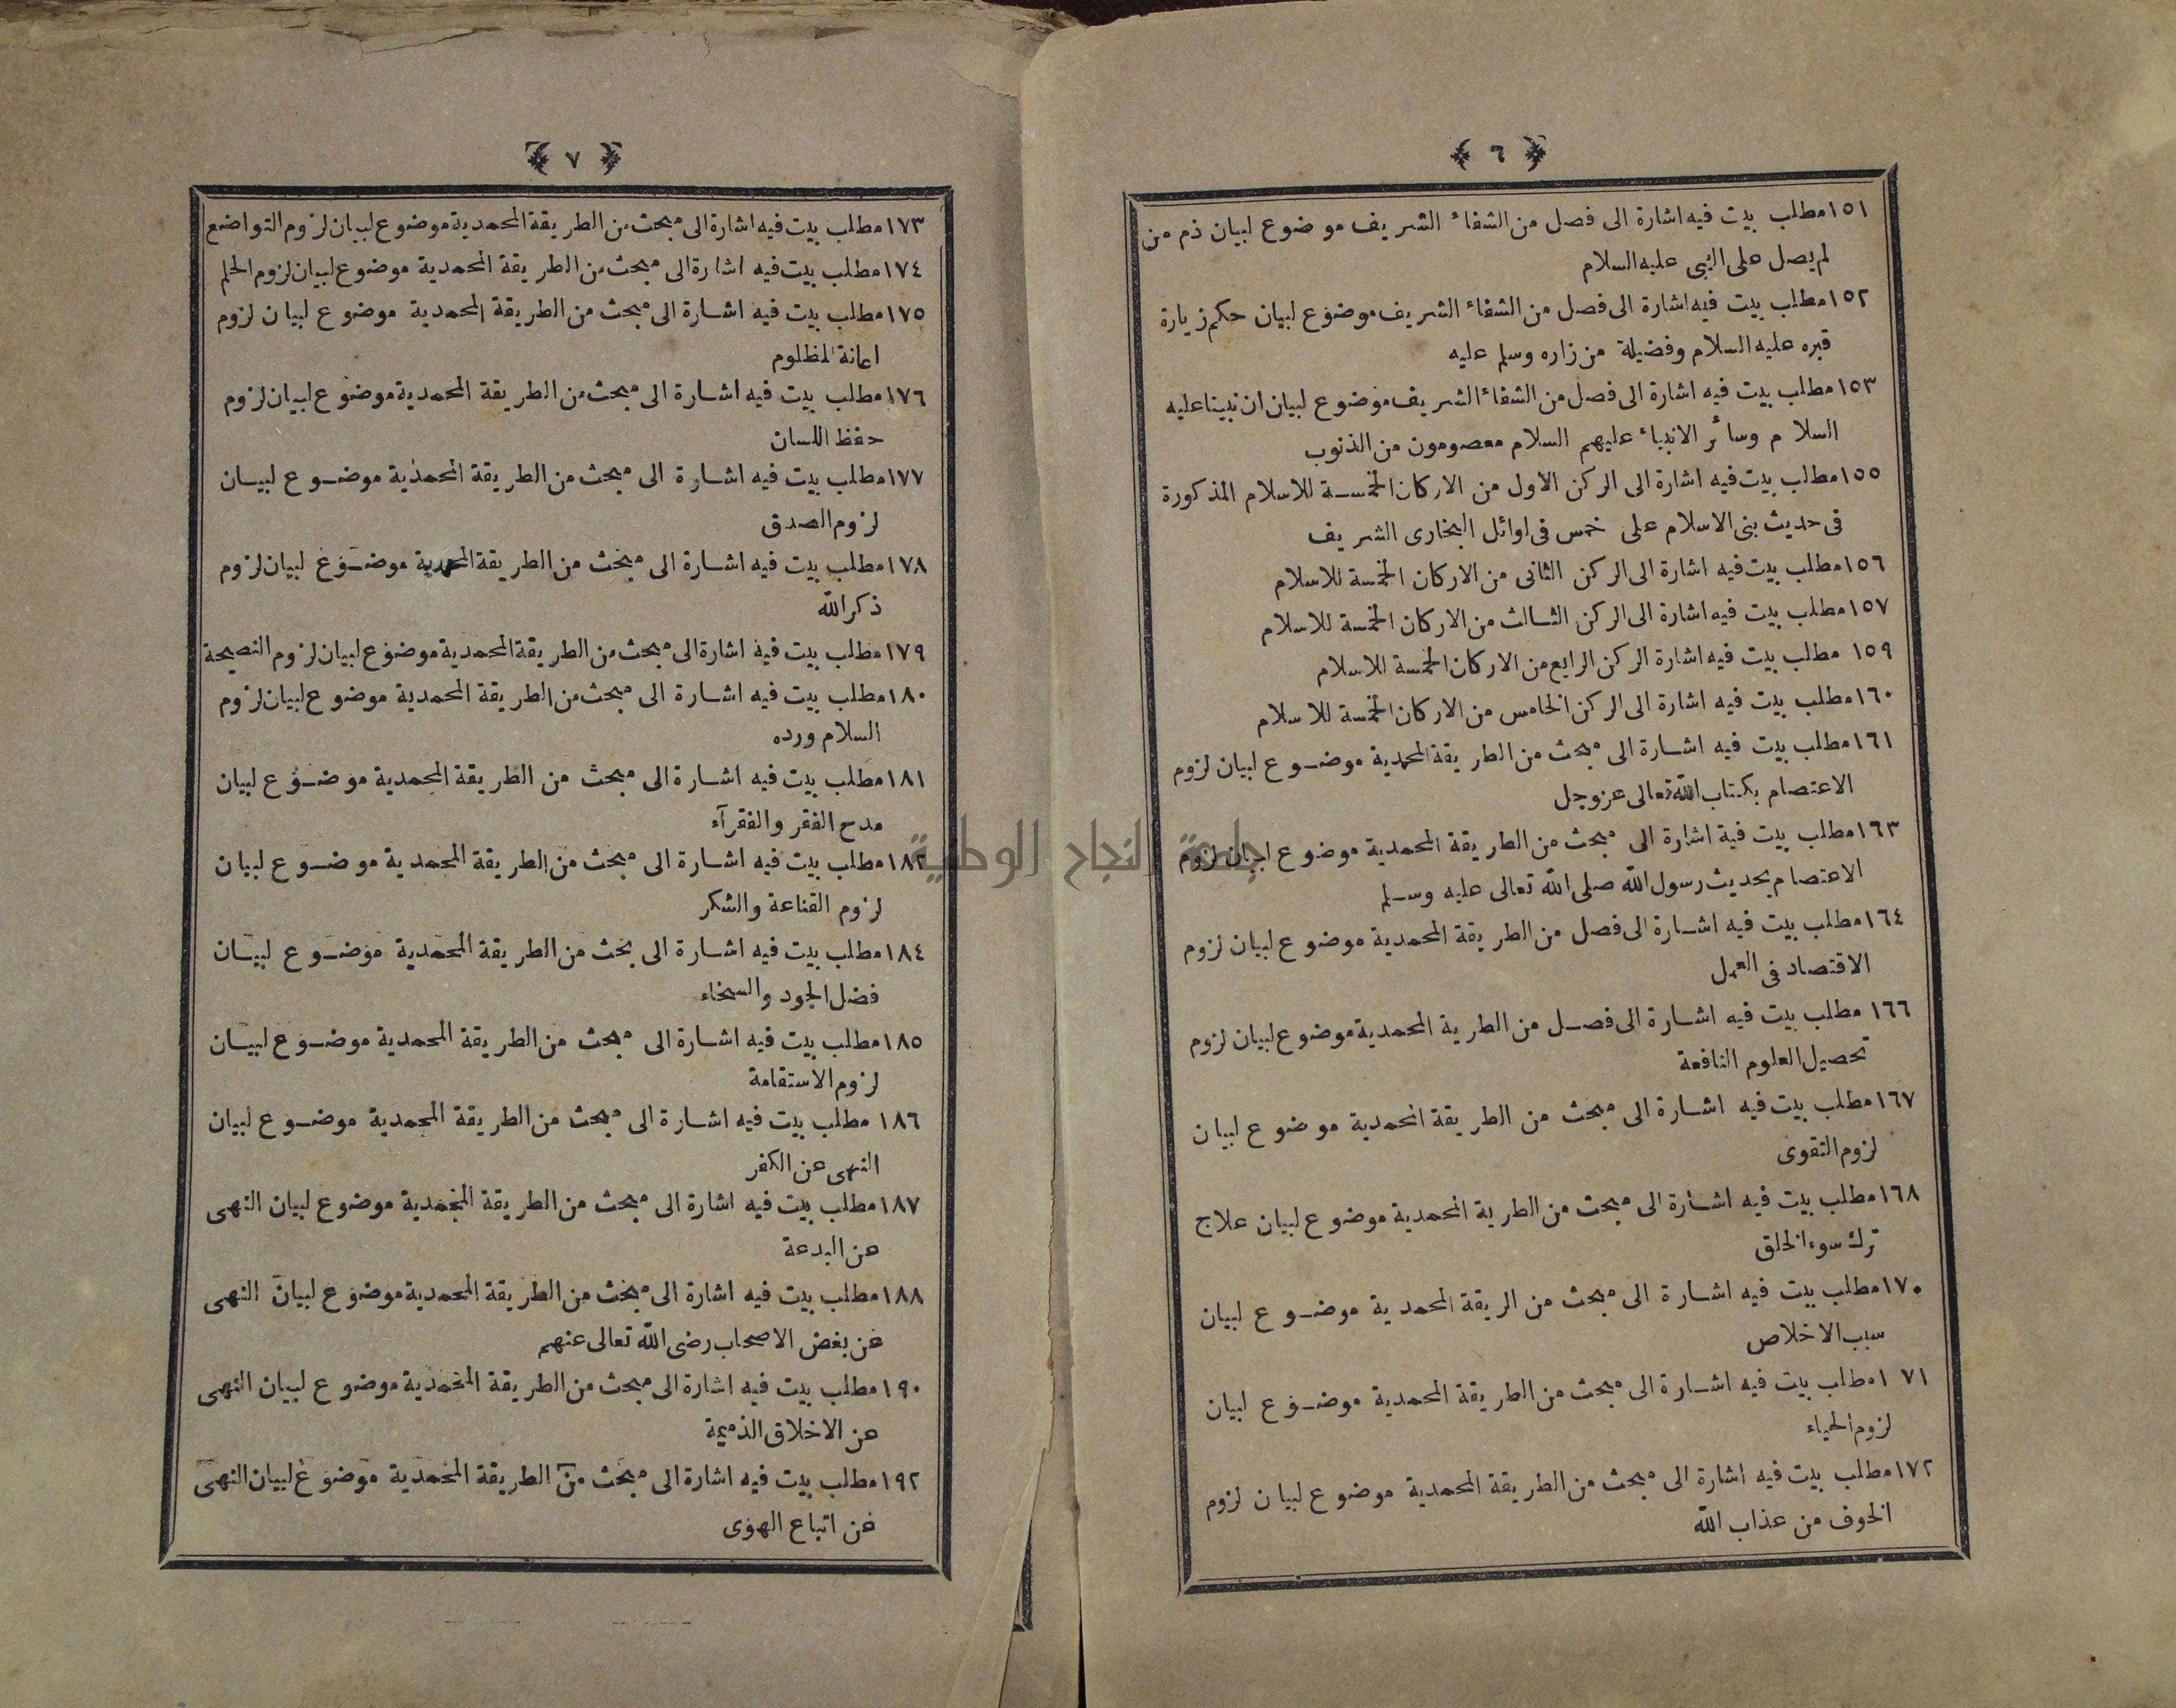 ﴿ ٦ ﴾
١٥١ مطلب بيت فيه اشارة الى فصل من الشفاء الشريف موضوع لبيان ذم من
لم يصل على النبى عليه السلام
١٥٢ مطلب بيت فيه اشارة الى فصل من الشفاء الشريف موضوع لبيان حكم زيارة
قبره عليه السلام وفضيلة من زاره وسلم عليه
١٥٣ مطلب بيت فيه اشارة الى فصل من الشفاء الشريف موضوع لبيان ان نبينا عليه
السلام وسائر الانبياء عليهم السلام معصومون من الذنوب
١٥٥ مطلب بيت فيه اشارة الى الركن الاول من الاركان الخمسة للاسلام المذكورة
فى حديث بنى الاسلام على خمس فى اوائل البخارى الشريف
١٥٦ مطلب بيت فيه اشارة الى الركن الثانى من الاركان الخمسة للاسلام
١٥٧ مطلب بيت فيه اشارة الى الركن الثالث من الاركان الخمسة للاسلام
١٥٩ مطلب بيت فيه اشارة الركن الرابع من الاركان الخمسة للاسلام
١٦٠ مطلب بيت فيه اشارة الى الركن الخامس من الاركان الخمسة للاسلام
١٦١ مطلب بيت فيه اشارة الى مبحث من الطريقة المحمدية موضوع لبيان لزوم
الاعتصام بكتاب الله تعالى عزوجل
١٦٣ مطلب بيت فية اشارة الى مبحث من الطريقة المحمدية موضوع لبيان لزوم
الاعتصام بحديث رسول الله صلى الله تعالى عليه وسلم
١٦٤ مطلب بيت فيه اشارة الى فصل من الطريقة المحمدية موضوع لبيان لزوم
الاقتصاد فى العمل
١٦٦ مطلب بيت فيه اشارة الى فصل من الطرية المحمدية موضوع لبيان لزوم
تحصيل العلوم النافعة
١٦٧ مطلب بيت فيه اشارة الى مبحث من الطريقة المحمدية موضوع لبيان
لزوم التقوى
١٦٨ مطلب بيت فيه اشارة الى مبحث من الطرية المحمدية موضوع لبيان علاج
ترك سوء الخلق
١٧٠ مطلب بيت فيه اشارة الى مبحث من الريقة المحمدية موضوع لبيان
سبب الاخلاص
١٧١ مطلب بيت فيه اشارة الى مبحث من الطريقة المحمدية موضوع لبيان
لزوم الحياء
١٧٢ مطلب بيت فيه اشارة الى مبحث من الطريقة المحمدية موضوع لبيان لزوم
الخوف من عذاب الله
﴿ ٧ ﴾
١٧٣ مطلب بيت فيه اشارة الى مبحث من الطريقة المحمدية موضوع لبيان لزوم التواضع
١٧٤ مطلب بيت فيه اشارة الى مبحث من الطريقة المحمدية موضوع لبيان لزوم الحلم
١٧٥ مطلب بيت فيه اشارة الى مبحث من الطريقة المحمدية موضوع لبيان لزوم
اعانة المظلوم
١٧٦ مطلب بيت فيه اشارة الى مبحث من الطريقة المحمدية موضوع لبيان لزوم
حفظ اللسان
١٧٧ مطلب بيت فيه اشارة الى مبحث من الطريقة المحمدية موضوع لبيان
لزوم الصدق
١٧٨ مطلب بيت فيه اشارة الى مبحث من الطريقة المحمدية موضوع لبيان لزوم
ذكر الله
١٧٩ مطلب بيت فيه اشارة الى مبحث من الطريقة المحمدية موضوع لبيان لزوم النصيحة
١٨٠ مطلب بيت فيه اشارة الى مبحث من الطريقة المحمدية موضوع لبيان لزوم
السلام ورده
١٨١ مطلب بيت فيه اشارة الى مبحث من الطريقة المحمدية موضوع لبيان
مدح الفقر والفقرآء
١٨٢ مطلب بيت فيه اشارة الى مبحث من الطريقة المحمدية موضوع لبيان
لزوم القناعة والشكر
١٨٤ مطلب بيت فيه اشارة الى بحث من الطريقة المحمدية موضوع لبيان
فضل الجود والسخاء
١٨٥ مطلب بيت فيه اشارة الى مبحث من الطريقة المحمدية موضوع لبيان
لزوم الاستقامة
١٨٦ مطلب بيت فيه اشارة الى مبحث من الطريقة المحمدية موضوع لبيان
النهى عن الكفر
١٨٧ مطلب بيت فيه اشارة الى مبحث من الطريقة المحمدية موضوع لبيان النهى
عن البدعة
١٨٨ مطلب بيت فيه اشارة الى مبحث من الطريقة المحمدية موضوع لبيان النهى
عن بغض الاصحاب رضى الله تعالى عنهم
١٩٠ مطلب بيت فيه اشارة الى مبحث من الطريقة المحمدية موضوع لبيان النهى
عن الاخلاق الذميمة
١٩٢ مطلب بيت فيه اشارة الى مبحث من الطريقة المحمدية موضوع لبيان النهى
عن اتباع الهوى
جامعة النجاح الوطنية